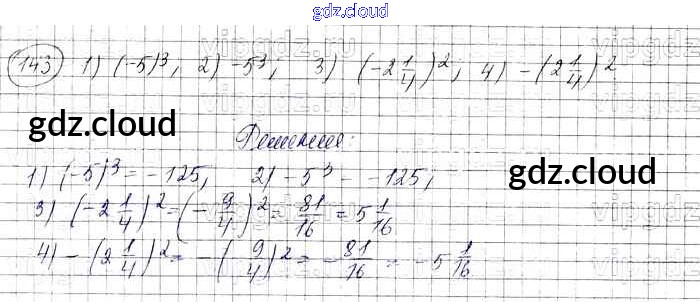 gdz.cloud
143) 1) (-5)³; 2) -5³; 3) (-2 1/4)²; 4) -(2 1/4)²
gdz.cloud
Решение:
gdz.cloud
1) (-5)³ = -125; 2) -5³ = -125;
3) (-2 1/4)² = (-9/4)² = 81/16 = 5 1/16
4) -(2 1/4)² = -(9/4)² = -81/16 = -5 1/16